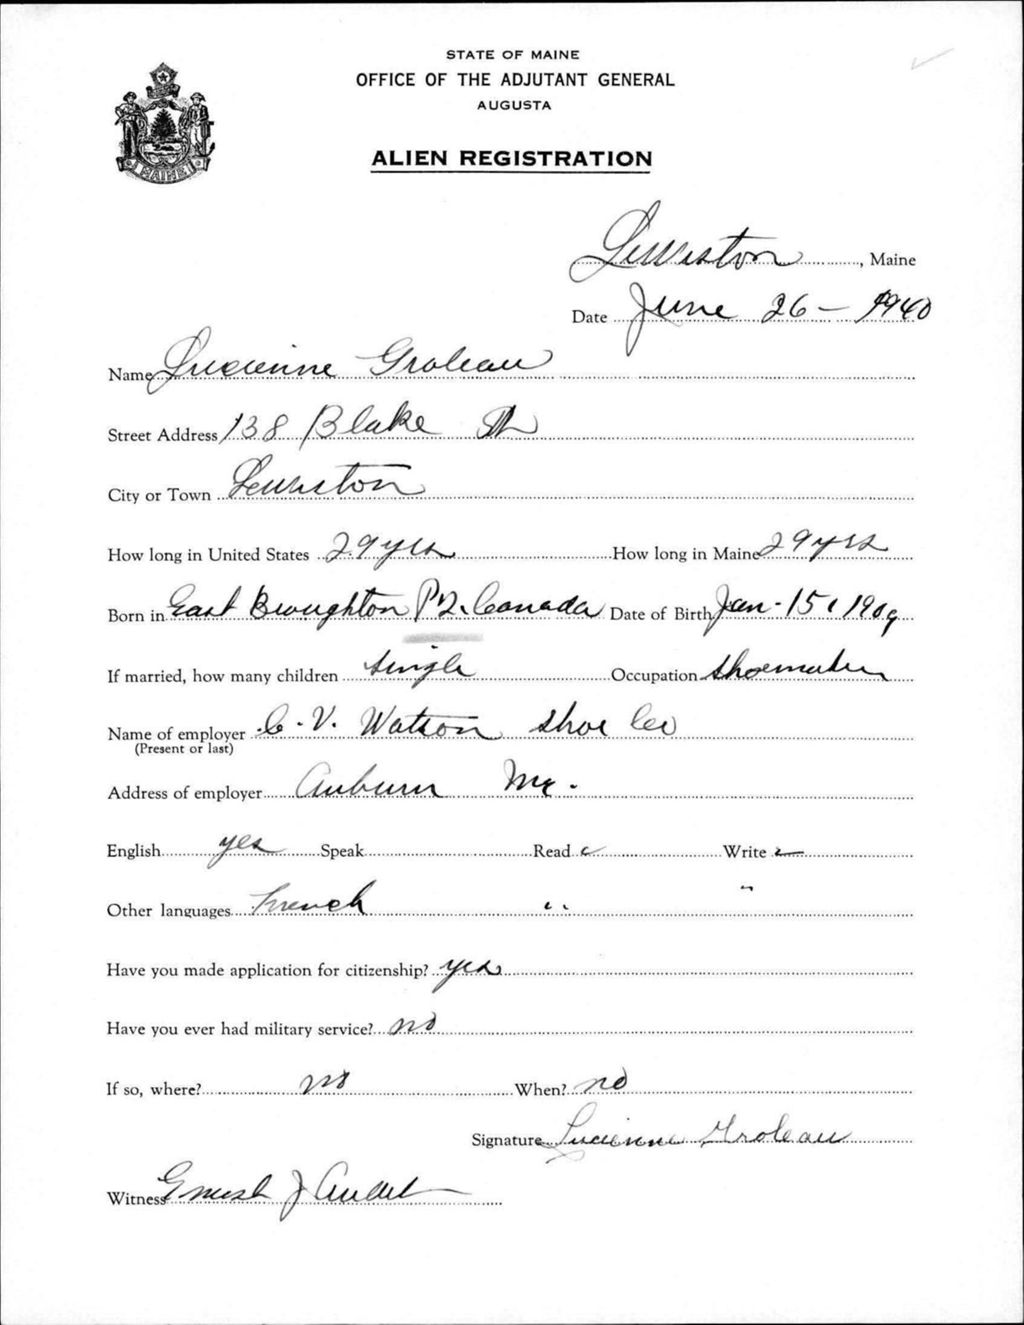 STATE OF MAINE
OFFICE OF THE ADJUTANT GENERAL
AUGUSTA
MAINE
ALIEN REGISTRATION
Lewiston, Maine
Date June 26 - 1940
Name Lucienne Groleau
Street Address 138 Blake St
City or Town Lewiston
How long in United States 29 yrs How long in Maine 29 yrs
Born in East Broughton P2. Canada Date of Birth Jan - 15, 1909
If married, how many children single Occupation Shoemaker
Name of employer C. V. Watson Shoe Co
(Present or last)
Address of employer Auburn Me.
English yes Speak Read Write
Other languages French " "
Have you made application for citizenship? yes
Have you ever had military service? no
If so, where? no When? no
Signature Lucienne Groleau
Witness Ernest J Audet